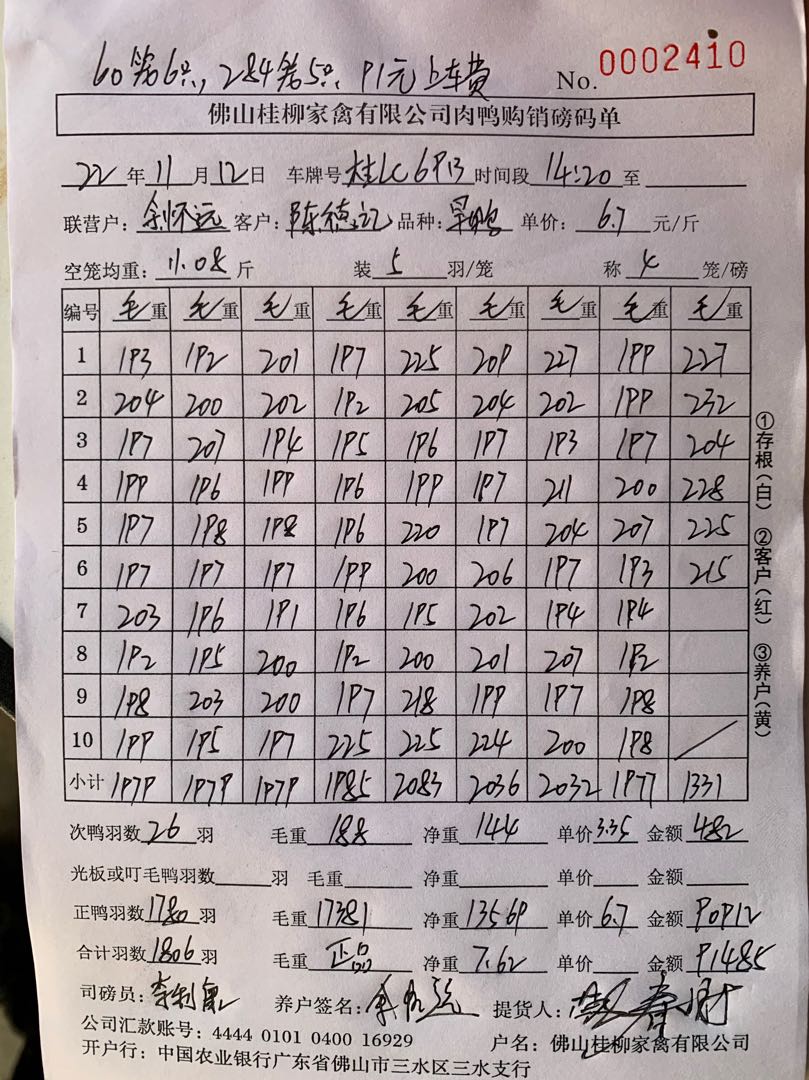 60笼6只, 284笼5只, 91元上车费
No. 0002410
佛山桂柳家禽有限公司肉鸭购销磅码单
22年11月12日 车牌号桂LC6913 时间段14:20至
联营户：余怀远 客户：陈德记 品种：旱鸭 单价：6.7元/斤
空笼均重：11.08斤 装5羽/笼 称4笼/磅
编号 毛重 毛重 毛重 毛重 毛重 毛重 毛重 毛重 毛重
1 193 192 201 197 225 209 227 199 227
2 204 200 202 192 205 204 202 199 232
3 197 207 194 195 196 197 193 197 204
4 199 196 199 196 199 197 211 200 228
5 197 198 198 196 220 197 204 207 225
6 197 197 197 199 200 206 197 193 215
7 203 196 191 196 195 202 194 194
8 192 195 200 192 200 201 207 192
9 198 203 200 197 218 199 197 198
10 199 195 197 225 225 224 200 198
小计 1979 1979 1979 1985 2083 2036 2032 1977 1331
①存根（白） ②客户（红） ③养户（黄）
次鸭羽数26羽 毛重188 净重144 单价3.35 金额482
光板或叮毛鸭羽数 羽 毛重 净重 单价 金额
正鸭羽数1780羽 毛重17381 净重13569 单价6.7 金额90912
合计羽数1806羽 毛重正品 净重7.62 单价 金额91485
司磅员： 养户签名：余怀远 提货人：
公司汇款账号：4444 0101 0400 16929 户名：佛山桂柳家禽有限公司
开户行：中国农业银行广东省佛山市三水区三水支行